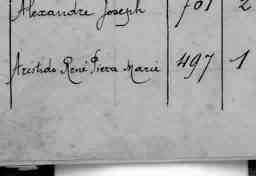 Alexandre Joseph 701 2
Aristide René Pierre Marie 497 1